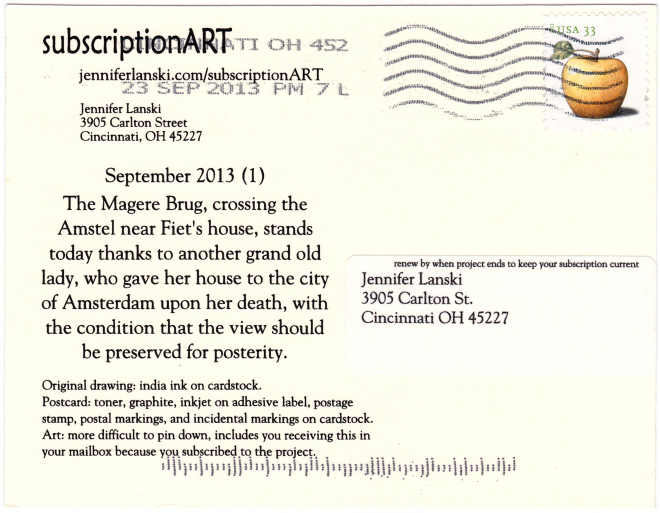 subscriptionART
CINCINNATI OH 452
USA 33
jenniferlanski.com/subscriptionART
23 SEP 2013 PM 7 L
Jennifer Lanski
3905 Carlton Street
Cincinnati, OH 45227
September 2013 (1)
The Magere Brug, crossing the
Amstel near Fiet's house, stands
today thanks to another grand old
lady, who gave her house to the city
of Amsterdam upon her death, with
the condition that the view should
be preserved for posterity.
renew by when project ends to keep your subscription current
Jennifer Lanski
3905 Carlton St.
Cincinnati OH 45227
Original drawing: india ink on cardstock.
Postcard: toner, graphite, inkjet on adhesive label, postage
stamp, postal markings, and incidental markings on cardstock.
Art: more difficult to pin down, includes you receiving this in
your mailbox because you subscribed to the project.